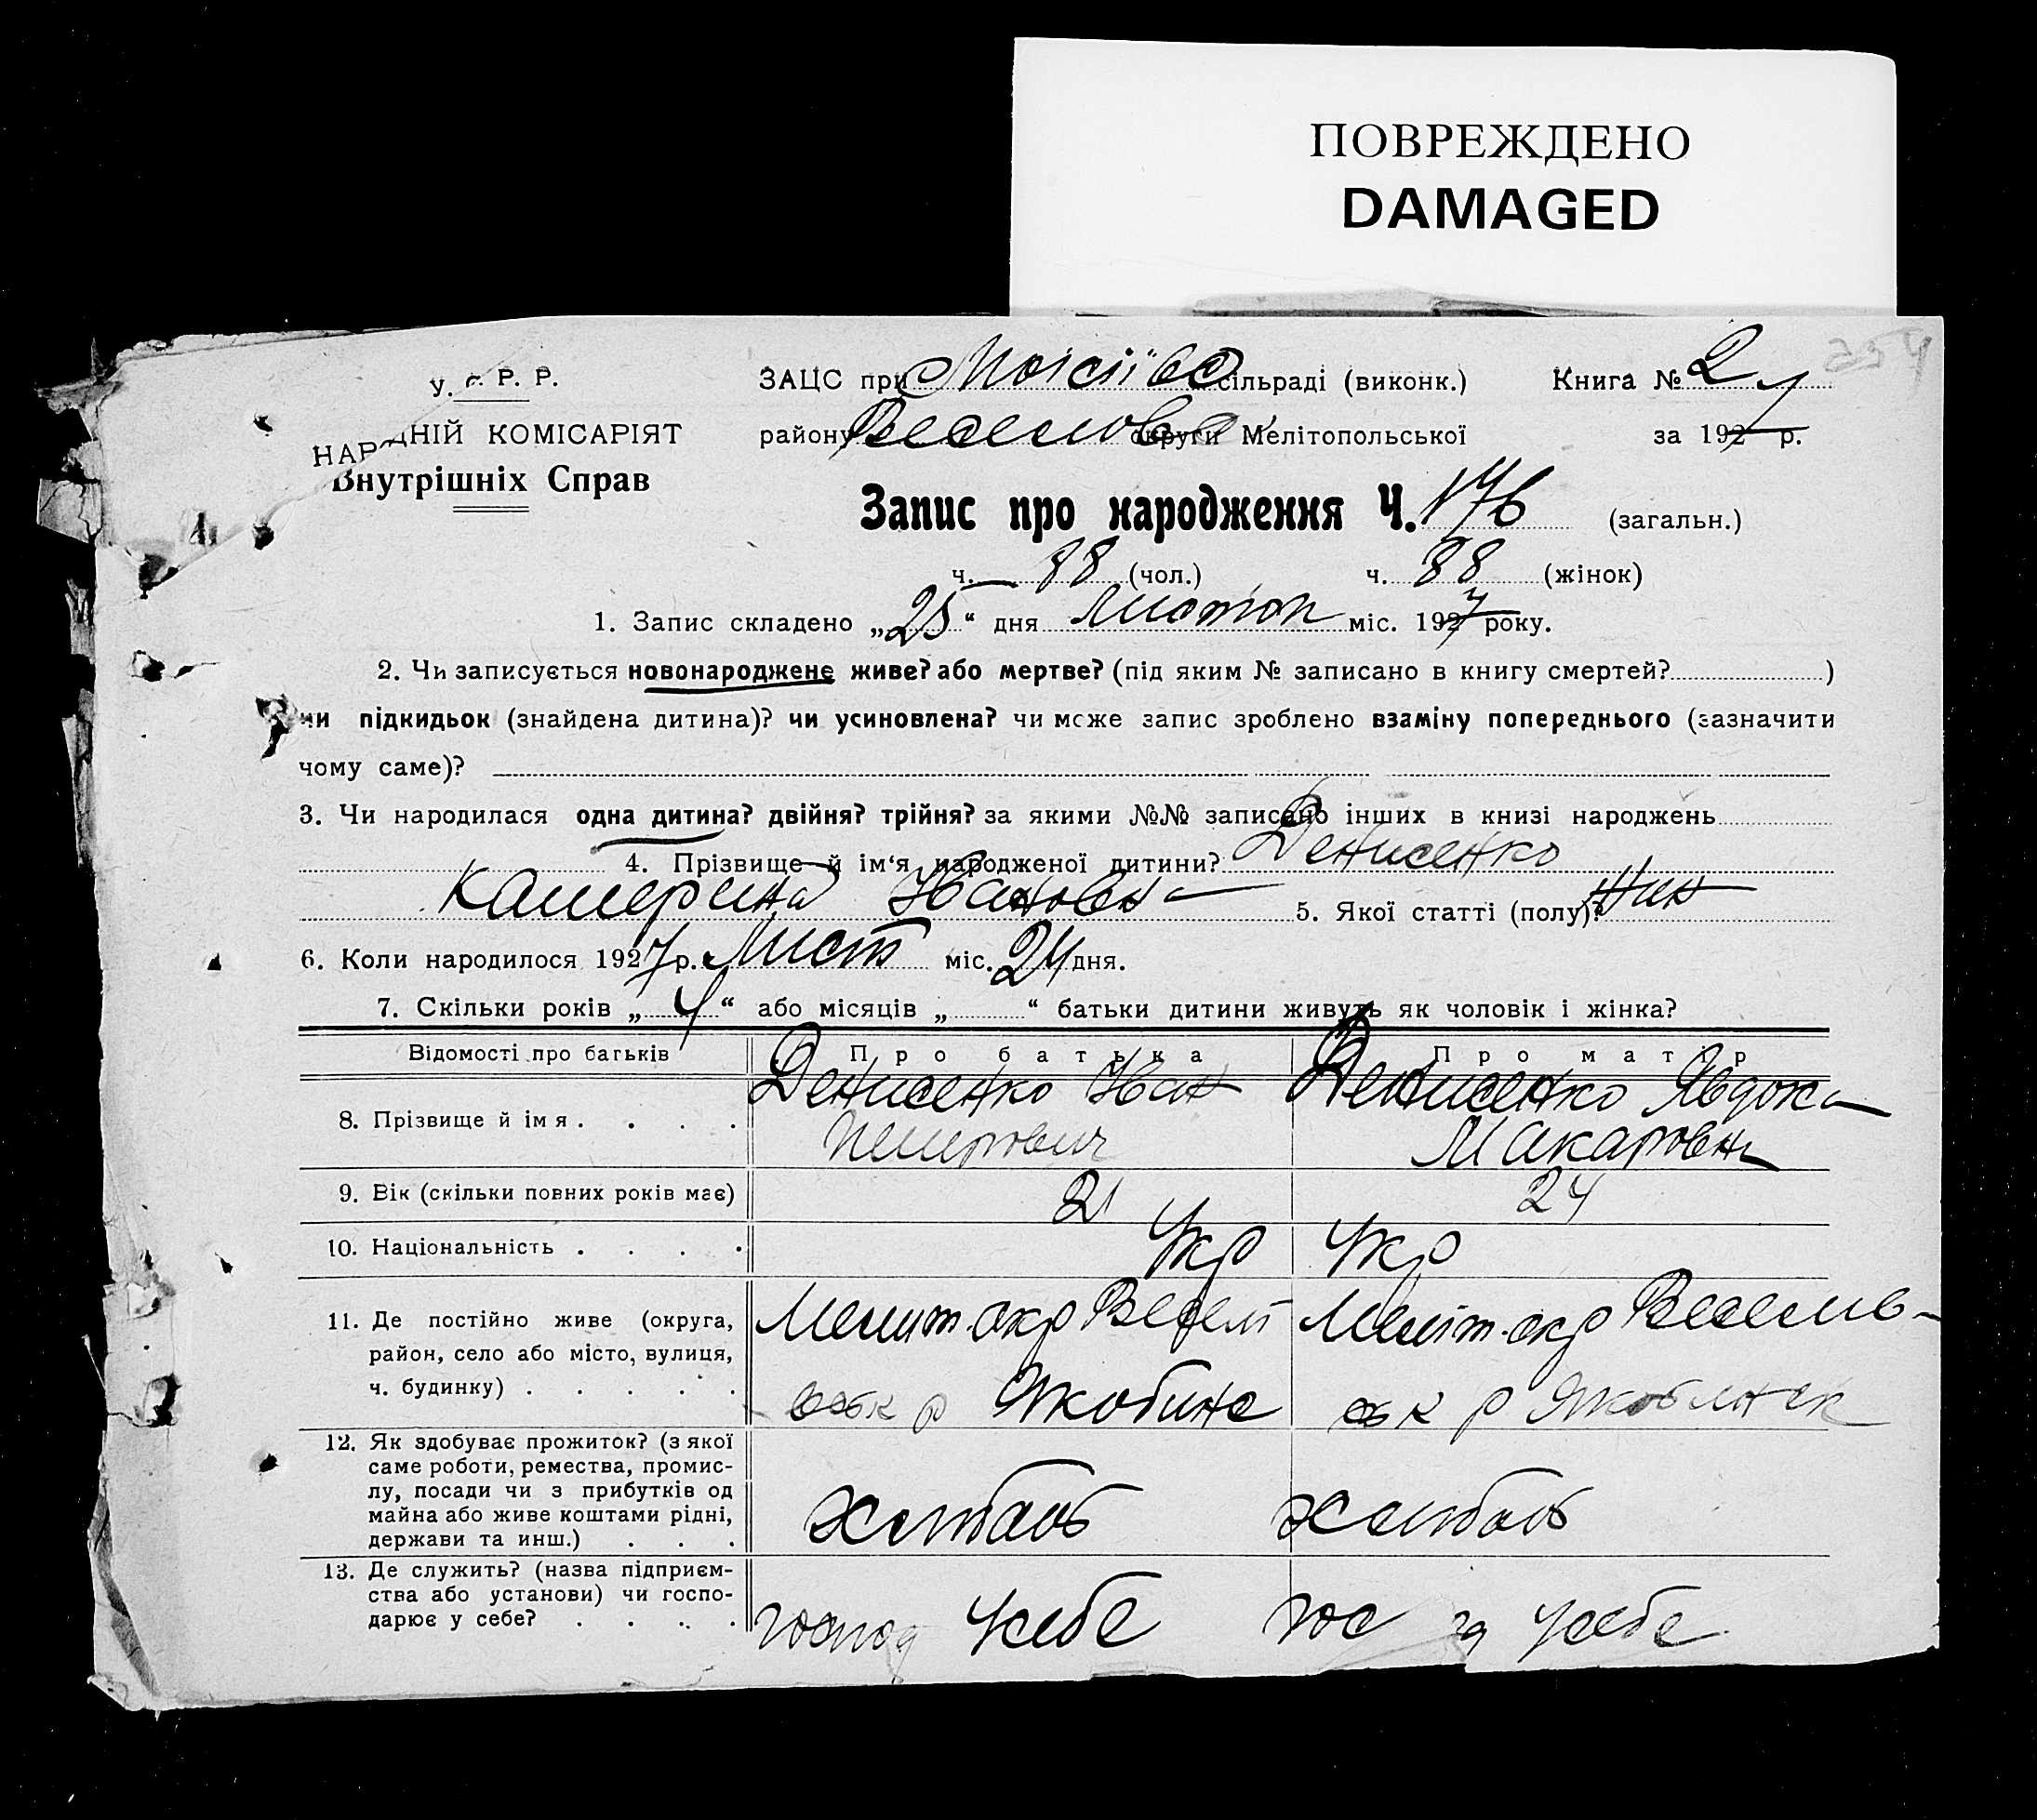 ПОВРЕЖДЕНО
DAMAGED
354
У. С. Р. Р.
ЗАЦС при Моісіївс сільраді (виконк.)
Книга № 2
НАРОДНІЙ КОМІСАРІЯТ
району Веселовс округи Мелітопольської
за 1927 р.
Внутрішніх Справ
Запис про народження Ч. 176 (загальн.)
ч. 88 (чол.) ч. 88 (жінок)
1. Запис складено „25“ дня Листоп міс. 1927 року.
2. Чи записується новонароджене живе? або мертве? (під яким № записано в книгу смертей? )
чи підкидьок (знайдена дитина)? чи усиновлена? чи може запис зроблено взаміну попереднього (зазначити
чому саме)?
3. Чи народилася одна дитина? двійня? трійня? за якими №№ записано інших в книзі народжень
4. Прізвище й ім‘я народженої дитини? Денисенко
Катерина Ивановна 5. Якої статті (полу)? Жин
6. Коли народилося 1927 р. Лист міс. 24 дня.
7. Скільки років „ 4 “ або місяців „ “ батьки дитини живуть як чоловік і жінка?
Відомості про батьків Про батька Про матір
8. Прізвище й ім я . . . . Денисенко Иван Петрович Денисенко Явдоха Макаровна
9. Вік (скільки повних років має) 21 24
10. Національність . . . . Укр Укр
11. Де постійно живе (округа, Мелит. окр Веселі Мелит. окр Веселов-
район, село або місто, вулиця,
ч. будинку) . . . . . к р к р
12. Як здобуває прожиток? (з якої
саме роботи, ремества, промис-
лу, посади чи з прибутків од Хлибаоб Хлибаоб
майна або живе коштами рідні,
держави та инш.) . . .
13. Де служить? (назва підприєм-
ства або установи) чи госпо- господ Усебе гос Усебе
дарює у себе? . . . .